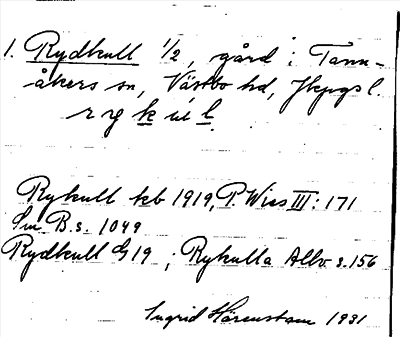 1. Rydkull 1/2, gård i Tann-
åkers sn, Västbo hd, Jkpgs l.
r rg k ut l
Rykull kb 1919, P. Wies III: 171
Sm B.s. 1049
Rydkull G19; Rykulla Allv s.156
Ingrid Härenstam 1931